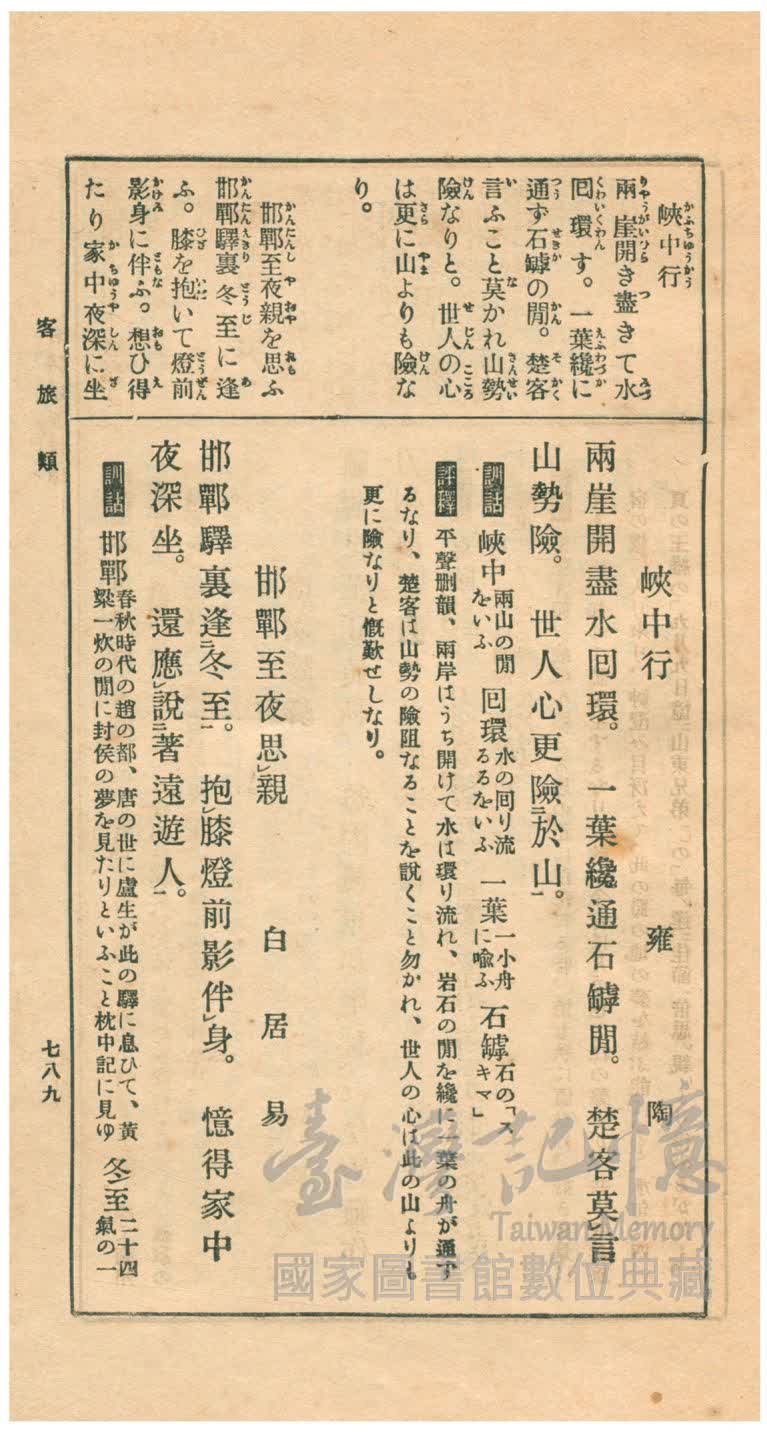 峽中行
兩崖開き盡きて水
囘環す。一葉纔に
通ず石罅の閒。楚客
言ふこと莫かれ山勢
險なりと。世人の心
は更に山よりも險な
り。
邯鄲至夜親を思ふ
邯鄲驛裏冬至に逢
ふ。膝を抱いて燈前
影身に伴ふ。想ひ得
たり家中夜深に坐
峽中行　雍陶
兩崖開盡水囘環。一葉纔通石罅閒。楚客莫言
山勢險。世人心更險二於山一。
訓話 峽中 兩山の閒をいふ 囘環 水の囘り流るるをいふ 一葉 一小舟に喩ふ 石罅 石の「スキマ」
評釋 平聲删韻、兩岸はうち開けて水は環り流れ、岩石の閒を纔に一葉の舟が通ず
るなり、楚客は山勢の險阻なることを說くこと勿かれ、世人の心は此の山よりも
更に險なりと慨歎せしなり。
邯鄲至夜思レ親　白居易
邯鄲驛裏逢二冬至一。抱レ膝燈前影伴レ身。憶得家中
夜深坐。還應レ說二著遠遊人一。
訓話 邯鄲 春秋時代の趙の都、唐の世に盧生が此の驛に息ひて、黃粱一炊の閒に封侯の夢を見たりといふこと枕中記に見ゆ 冬至 二十四氣の一
客旅類
七八九
臺灣記憶
Taiwan Memory
國家圖書館數位典藏